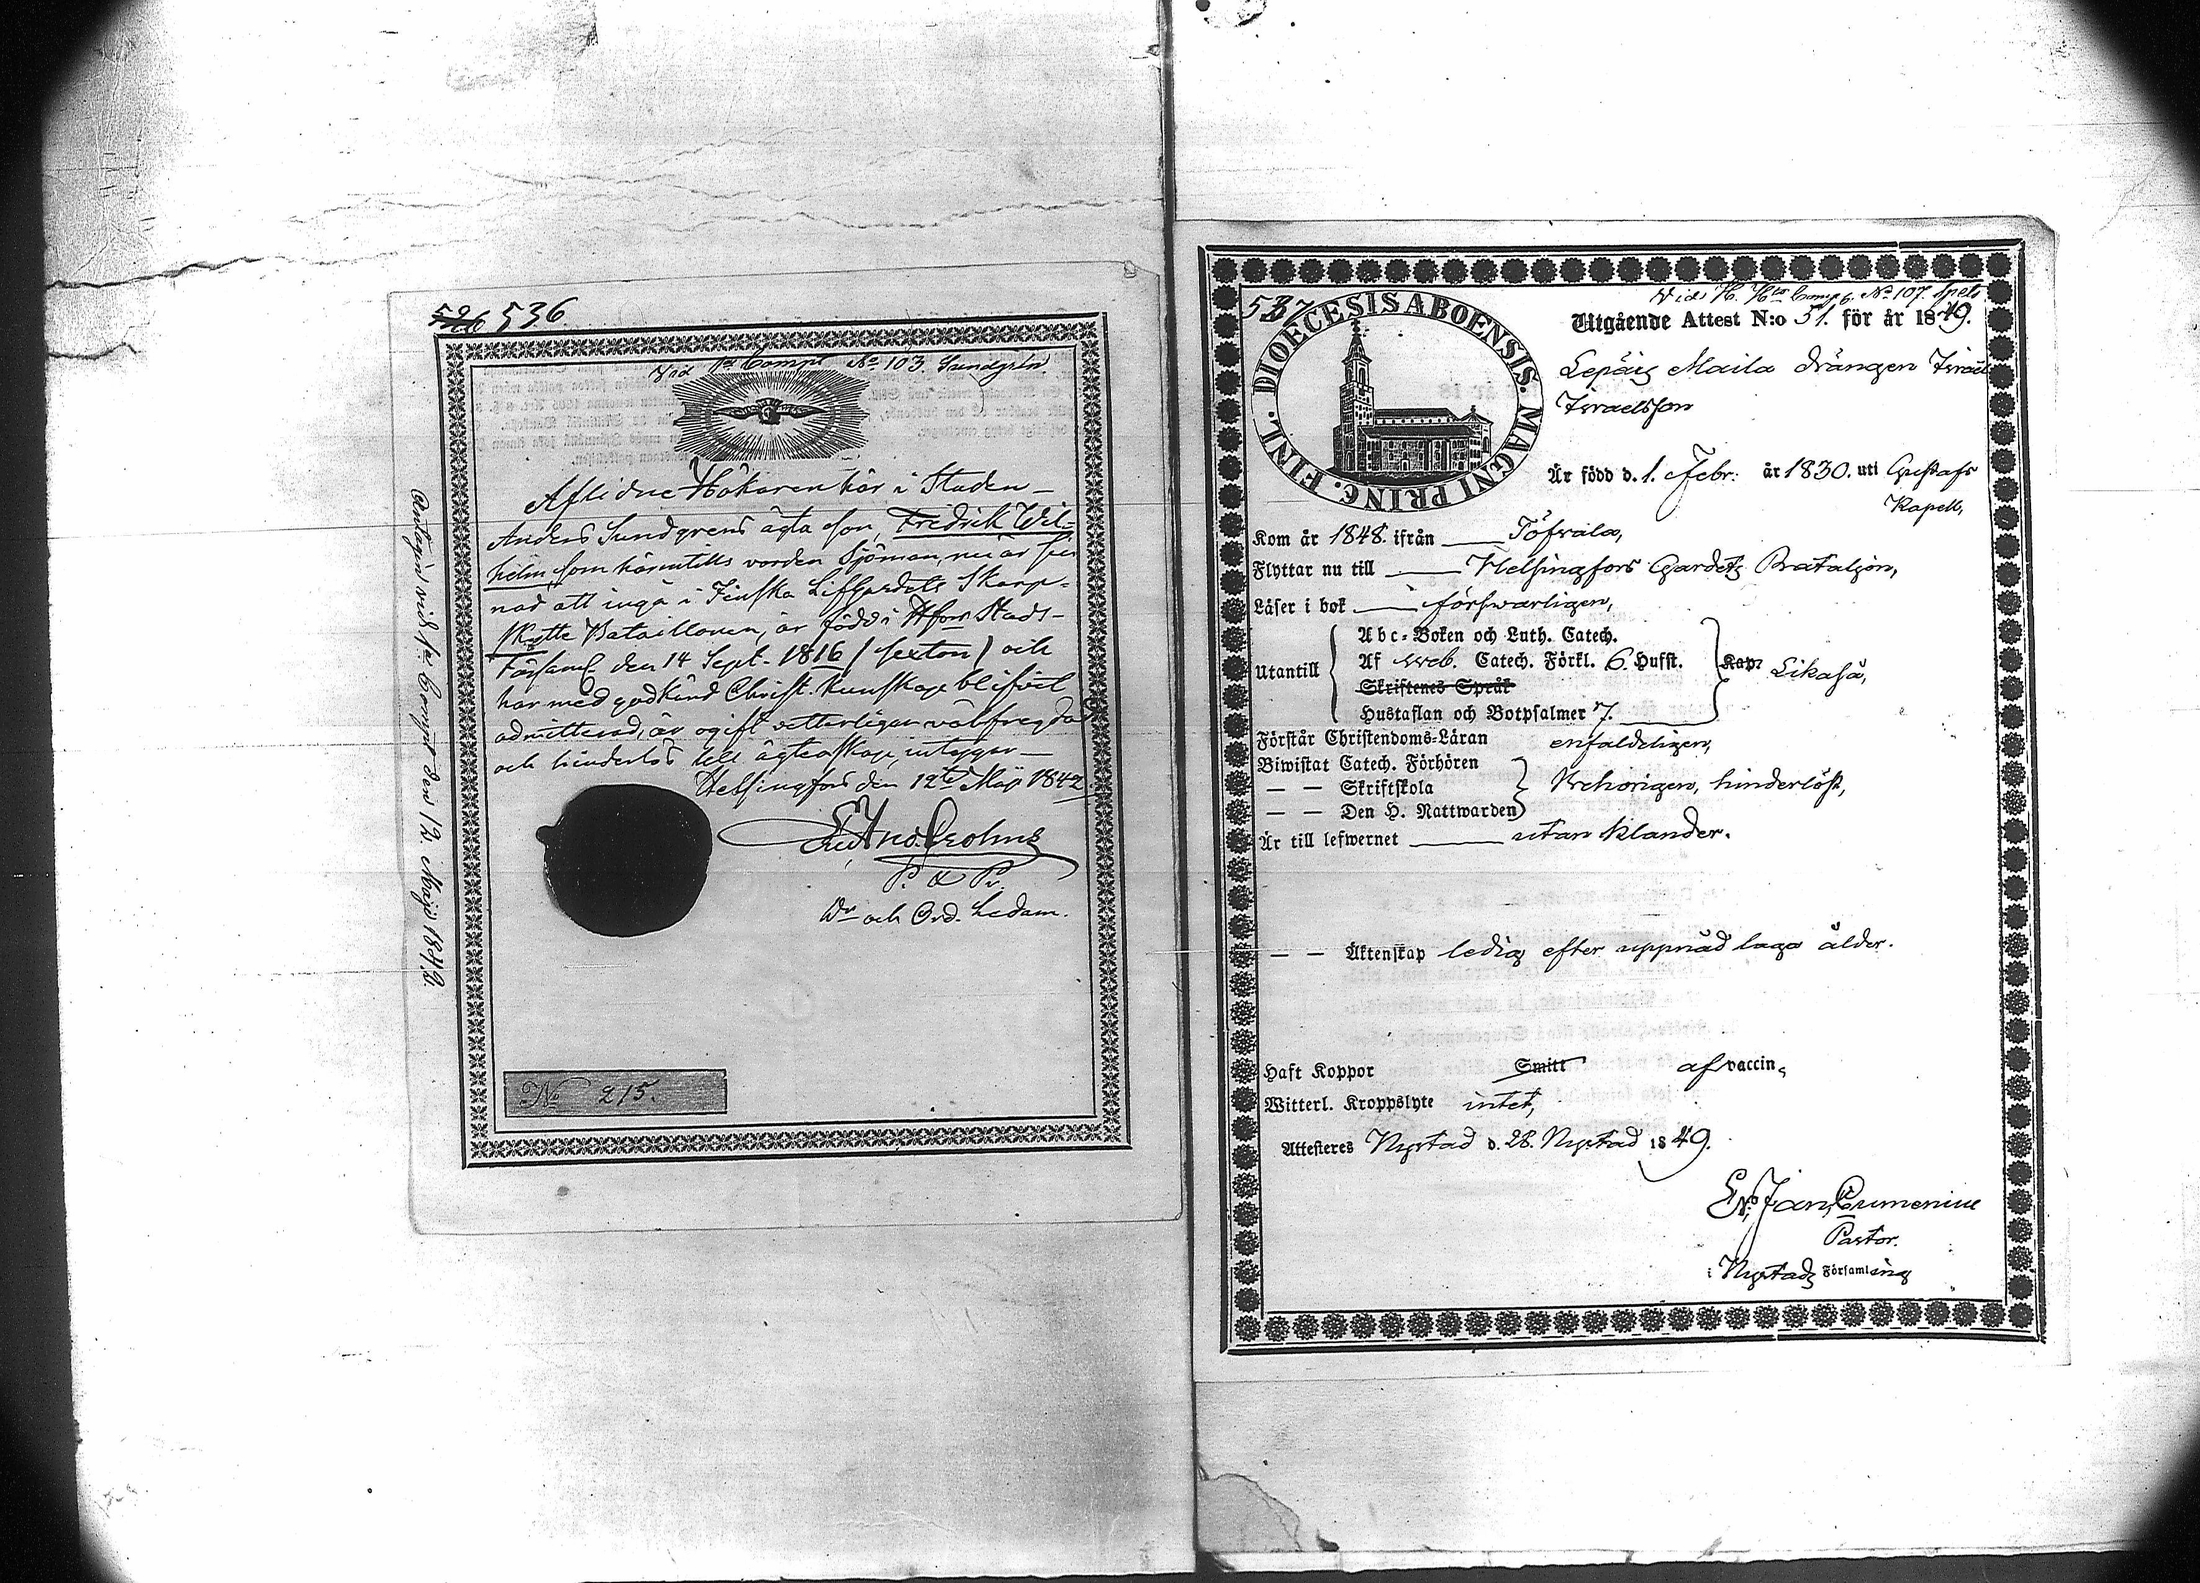 536
Vid 1a Compt No 103. Sundgren.
Aflidne Hökaren här i Staden
Anders Sundgrens ägta Son, Fredrik Wil-
helm som härintills varden Sjöman, nu är sin-
nad att ingå i Finska Lifgardets Skarp-
skytte Bataillonen, är född i Hfors Stads-
Församl. den 14 Sept. 1816 / sexton / och
har med godkänd Christ. Kunskap blifvit
admitterad, är ogift vetterligen välfregdad
och hinderlös till ägtenskap, intygar
Helsingfors den 12te Maji 1842.
Crohns
P. & Pr.
och Ord. Ledam.
No 215.
Antagen vid 1a Compt den 12. Maji 1842.
537
Vid No 107.
DIOECESIS ABOENSIS. MAGNI PRINC. FINL.
Utgående Attest N:o 51. för år 1849.
Lepäis Maila drängen Israel
Israelsson
Är född d. 1. Febr. år 1830. uti Gustafs
Kapell,
Kom år 1848. ifrån Töfsala,
Flyttar nu till Helsingfors Gardets Bataljon,
Läser i bok försvarligen,
Utantill
Abc-Boken och Luth. Catech.
Af Sveb. Catech. Förkl. 6. Hufst.
Skriftenes Språk
Hustaflan och Botpsalmer 7.
Kap: Likaså,
Förstår Christendoms-Läran enfaldeligen,
Biwistat Catech. Förhören
— — Skriftskola
— — Den H. Nattwarden
Behörigen, hinderlöst,
Är till lefwernet utan klander.
— — Äktenskap ledig efter uppnåd laga ålder.
Haft Koppor Smitt af vaccin,
Witterl. Kroppslyte intet,
Attesteres Nystad d. 28. Nystad 1849.
Pastor.
i Nystads Församling